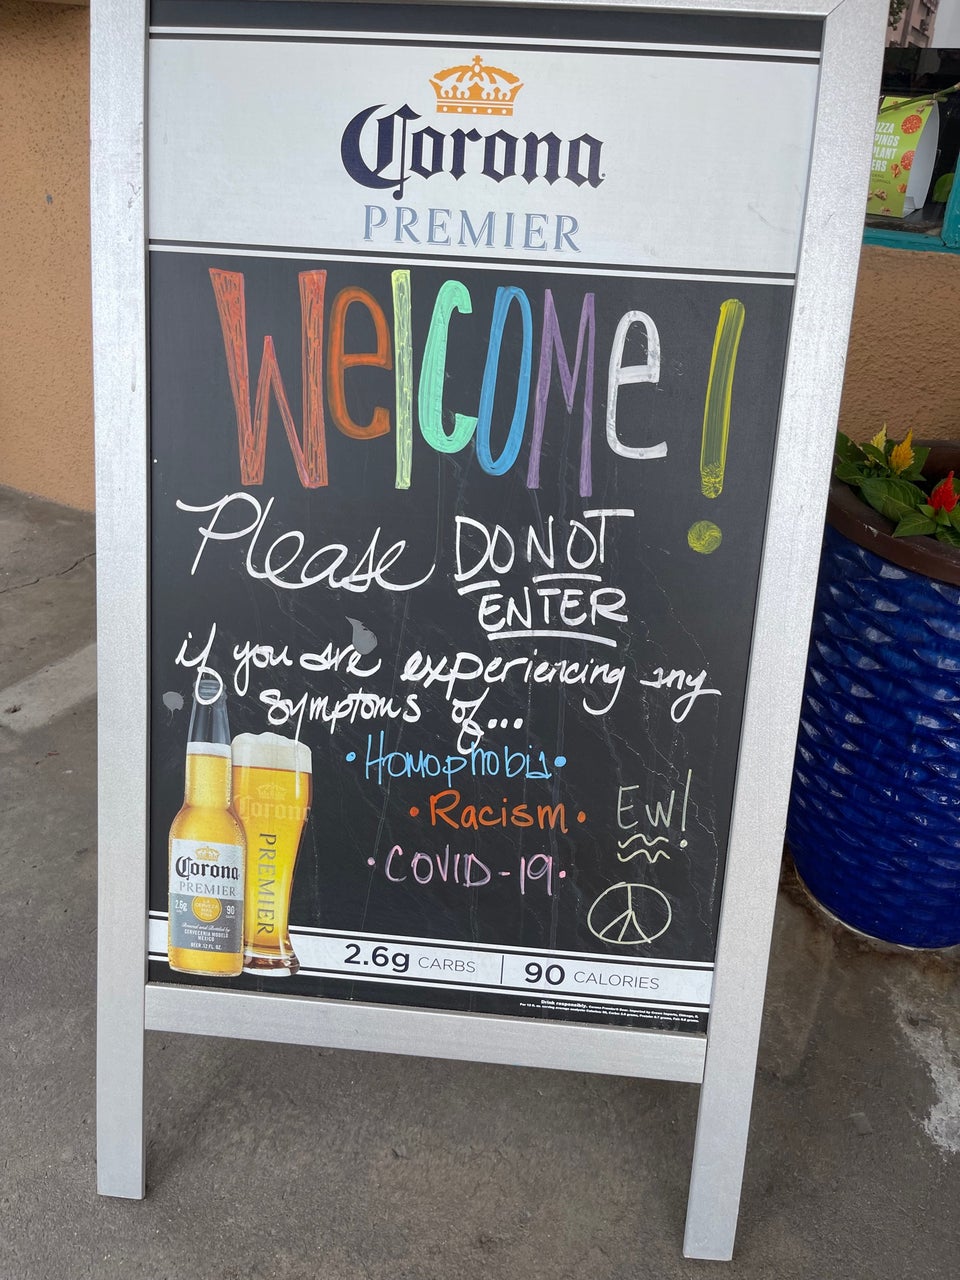 Corona
PREMIER
Welcome!
Please DO NOT
ENTER
if you are experiencing any
symptoms of...
•Homophobia•
•Racism•
•COVID-19•
EW!
Corona
PREMIER
2.6g
90
Corona
PREMIER
2.6g CARBS | 90 CALORIES
Drink responsibly.
PIZZA
PLANT